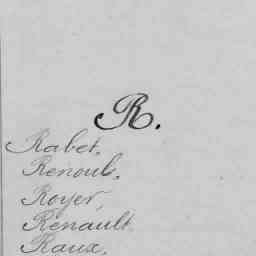 R.
Rabet.
Renoul.
Royer,
Renault
Raux.